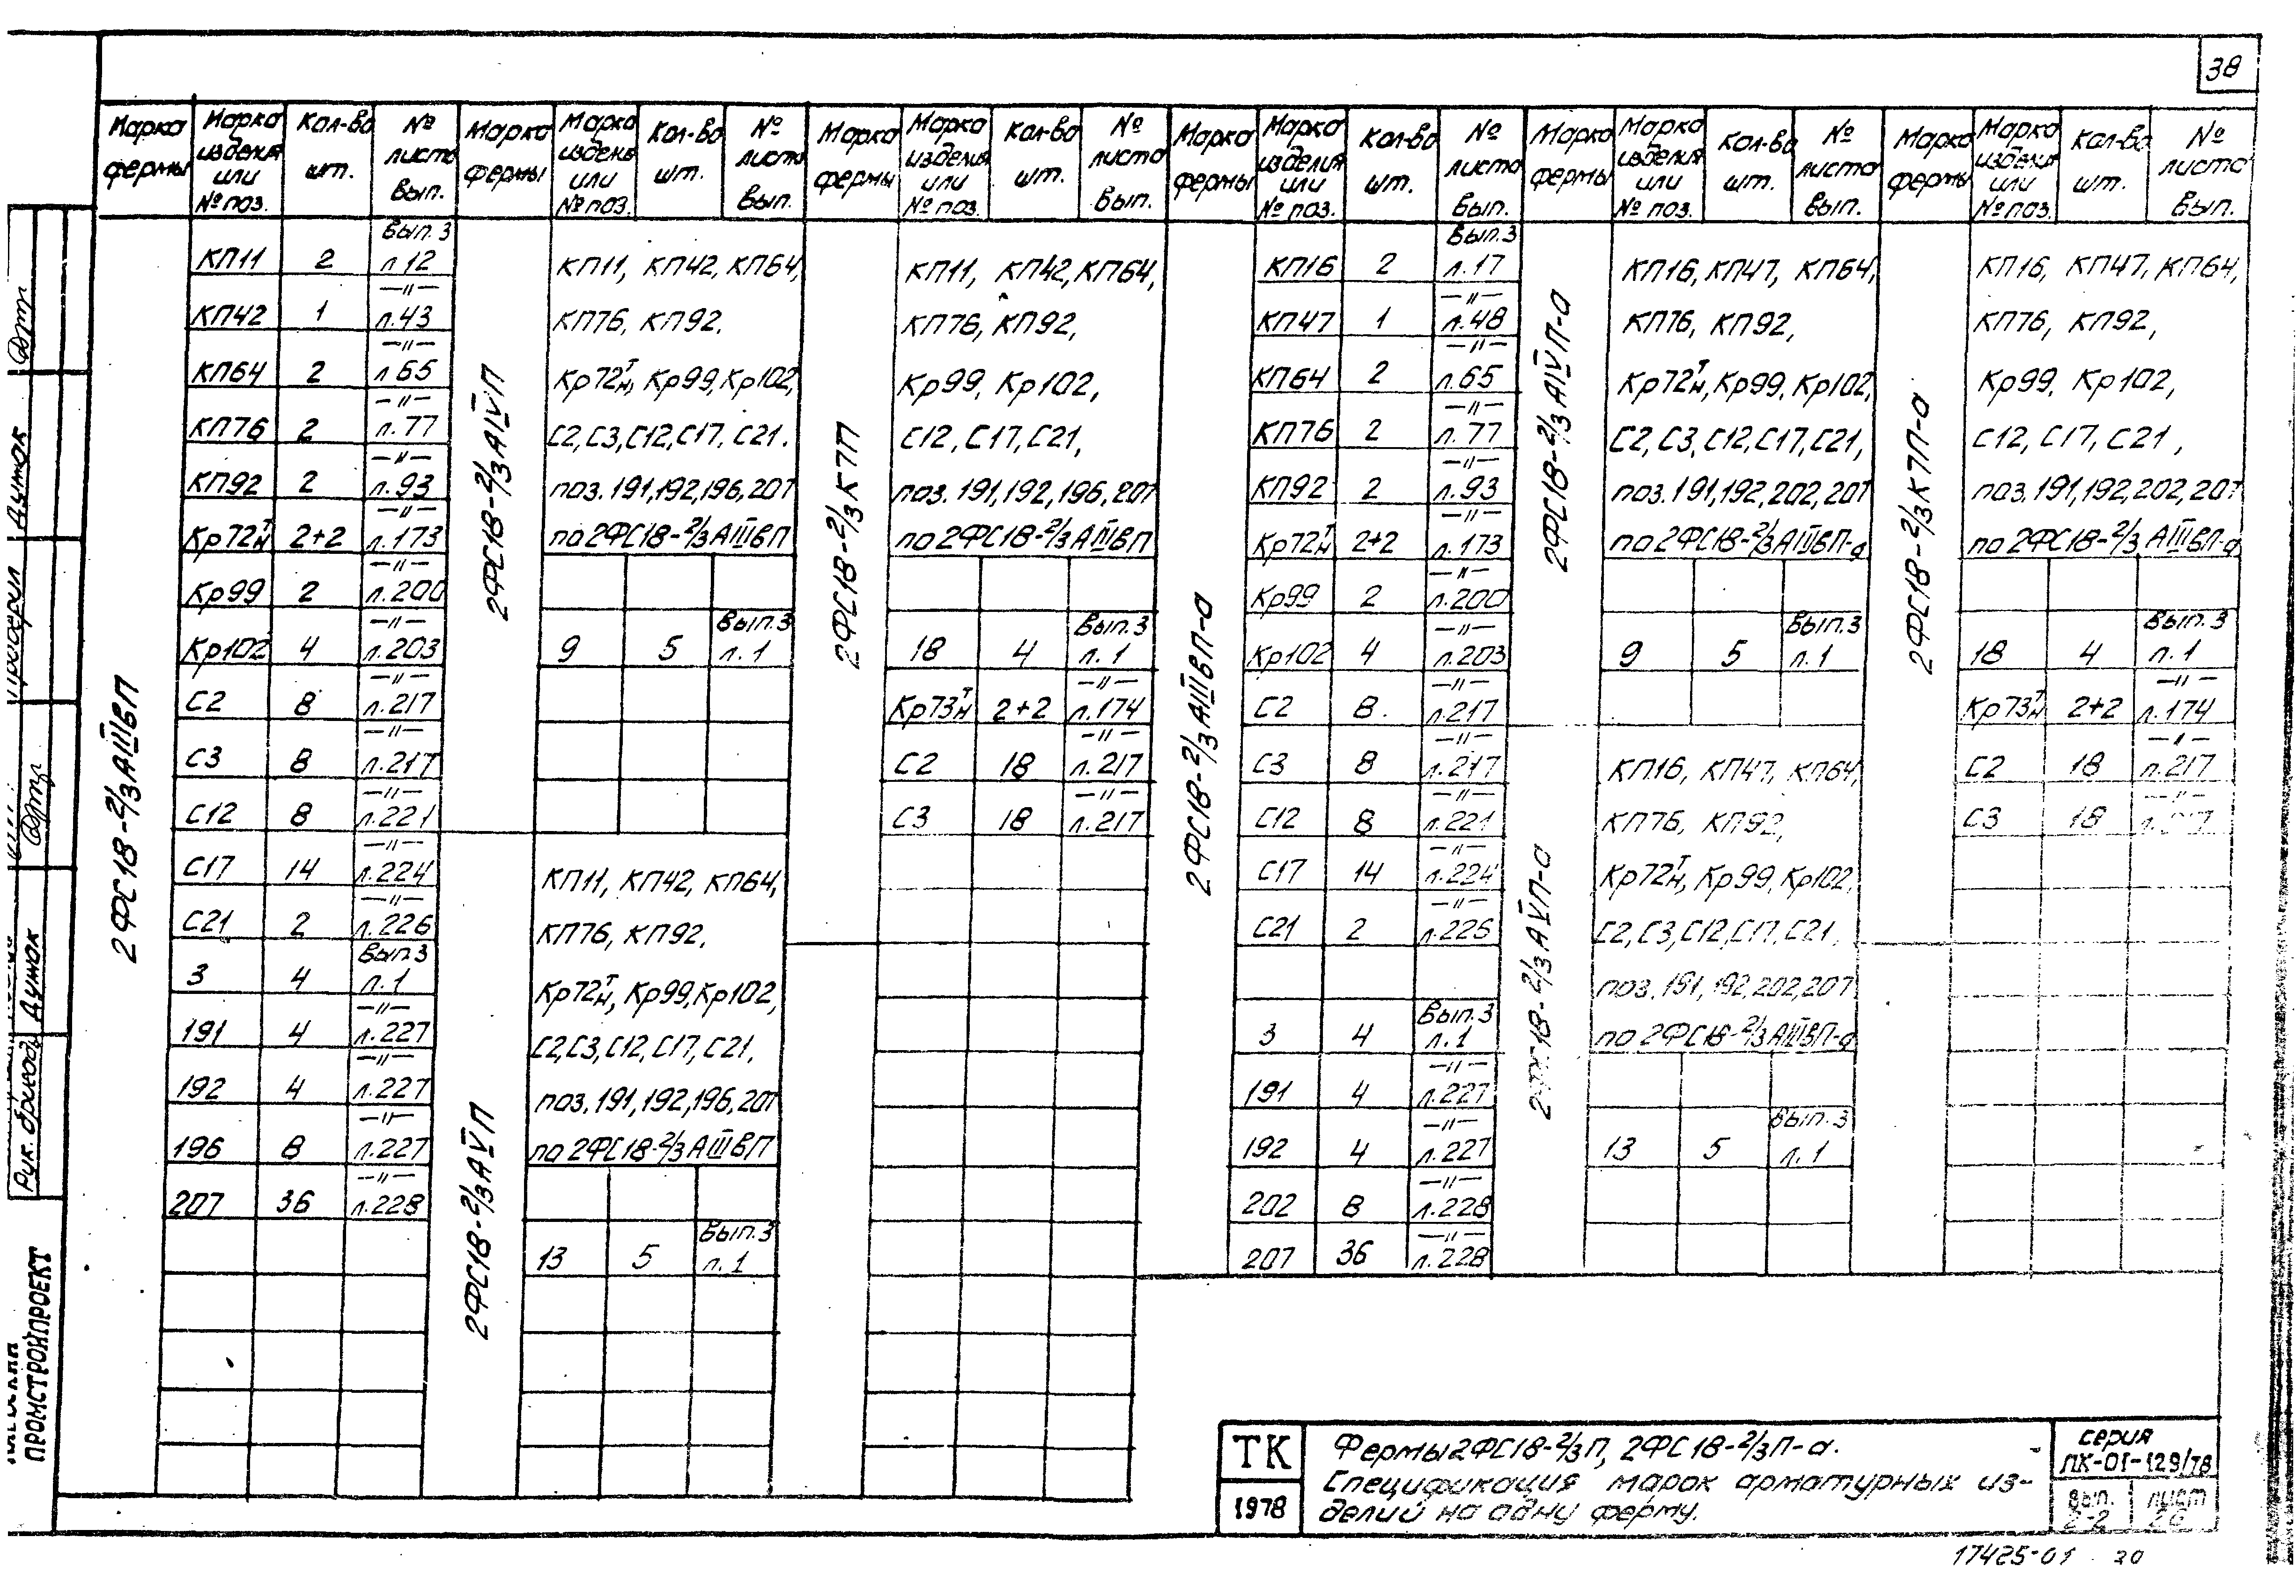 38
Марка фермы | Марка изделия или № поз. | Кол-во шт. | № листа вып. | Марка фермы | Марка изделия или № поз. | Кол-во шт. | № листа вып. | Марка фермы | Марка изделия или № поз. | Кол-во шт. | № листа вып. | Марка фермы | Марка изделия или № поз. | Кол-во шт. | № листа вып. | Марка фермы | Марка изделия или № поз. | Кол-во шт. | № листа вып. | Марка фермы | Марка изделия или № поз. | Кол-во шт. | № листа вып.
2ФС18-2/3АIIIвП
КП11 2 Вып.3 л.12
КП42 1 —"— л.43
КП64 2 —"— л.65
КП76 2 —"— л.77
КП92 2 —"— л.93
Кр72тн 2+2 —"— л.173
Кр99 2 —"— л.200
Кр102 4 —"— л.203
С2 8 —"— л.217
С3 8 —"— л.217
С12 8 —"— л.221
С17 14 —"— л.224
С21 2 —"— л.226
3 4 Вып.3 л.1
191 4 —"— л.227
192 4 —"— л.227
196 8 —"— л.227
207 36 —"— л.228
2ФС18-2/3АIVП
КП11, КП42, КП64,
КП76, КП92,
Кр72тн, Кр99, Кр102,
С2, С3, С12, С17, С21.
поз. 191, 192, 196, 207
по 2ФС18-2/3АIIIвП
9 5 Вып.3 л.1
2ФС18-2/3АVП
КП11, КП42, КП64,
КП76, КП92,
Кр72тн, Кр99, Кр102,
С2, С3, С12, С17, С21,
поз. 191, 192, 196, 207
по 2ФС18-2/3АIIIвП
13 5 Вып.3 л.1
2ФС18-2/3К7П
КП11, КП42, КП64,
КП76, КП92,
Кр99, Кр102,
С12, С17, С21,
поз. 191, 192, 196, 207
по 2ФС18-2/3АIIIвП
18 4 Вып.3 л.1
Кр73тн 2+2 —"— л.174
С2 18 —"— л.217
С3 18 —"— л.217
2ФС18-2/3АIIIвП-а
КП16 2 Вып.3 л.17
КП47 1 —"— л.48
КП64 2 —"— л.65
КП76 2 —"— л.77
КП92 2 —"— л.93
Кр72тн 2+2 —"— л.173
Кр99 2 —"— л.200
Кр102 4 —"— л.203
С2 8. —"— л.217
С3 8 —"— л.217
С12 8 —"— л.221
С17 14 —"— л.224
С21 2 —"— л.226
3 4 Вып.3 л.1
191 4 —"— л.227
192 4 —"— л.227
202 8 —"— л.228
207 36 —"— л.228
2ФС18-2/3АIVП-а
КП16, КП47, КП64,
КП76, КП92,
Кр72тн, Кр99, Кр102,
С2, С3, С12, С17, С21,
поз. 191, 192, 202, 207
по 2ФС18-2/3АIIIвП-а
9 5 Вып.3 л.1
2ФС18-2/3АVП-а
КП16, КП47, КП64,
КП76, КП92,
Кр72тн, Кр99, Кр102,
С2, С3, С12, С17, С21,
поз. 191, 192, 202, 207
по 2ФС18-2/3АIIIвП-а
13 5 Вып.3 л.1
2ФС18-2/3К7П-а
КП16, КП47, КП64,
КП76, КП92,
Кр99, Кр102,
С12, С17, С21,
поз. 191, 192, 202, 207
по 2ФС18-2/3АIIIвП-а
18 4 Вып.3 л.1
Кр73тн 2+2 —"— л.174
С2 18 —"— л.217
С3 18 —"— л.217
ТК
1978
Фермы 2ФС18-2/3П, 2ФС18-2/3П-а.
Спецификация марок арматурных из-
делий на одну ферму.
серия
ПК-01-129/78
Вып.
2-2
лист
17425-01
Проверил Думок
Рук. бригад. Думок
ПРОМСТРОЙПРОЕКТ